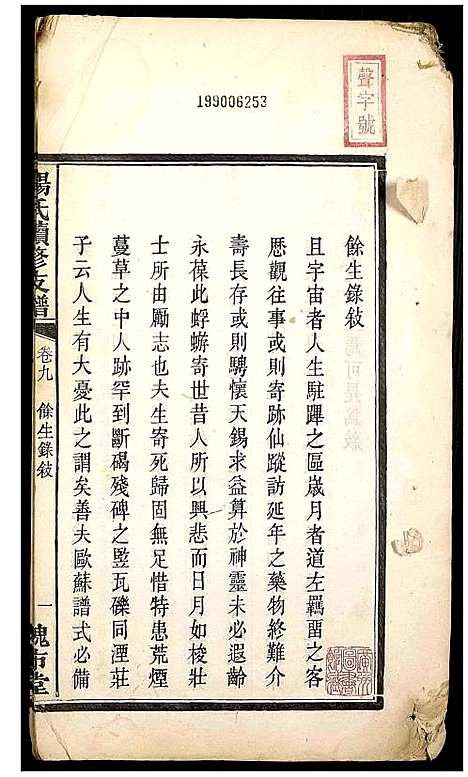 199006253
聲字號
餘生錄敍
且宇宙者人生駐蹕之區歲月者道左羈畱之客
厯觀往事或則寄跡仙蹤訪延年之藥物終難介
壽長存或則騁懷天錫求益算於神靈未必遐齡
永葆此蜉蝣寄世昔人所以興悲而日月如梭壯
士所由勵志也夫生寄死歸固無足惜特患荒煙
蔓草之中人跡罕到斷碣殘碑之竪瓦礫同湮莊
子云人生有大憂此之謂矣善夫歐蘇譜式必備
氏續修支譜
卷九
餘生錄敍
一
槐市堂